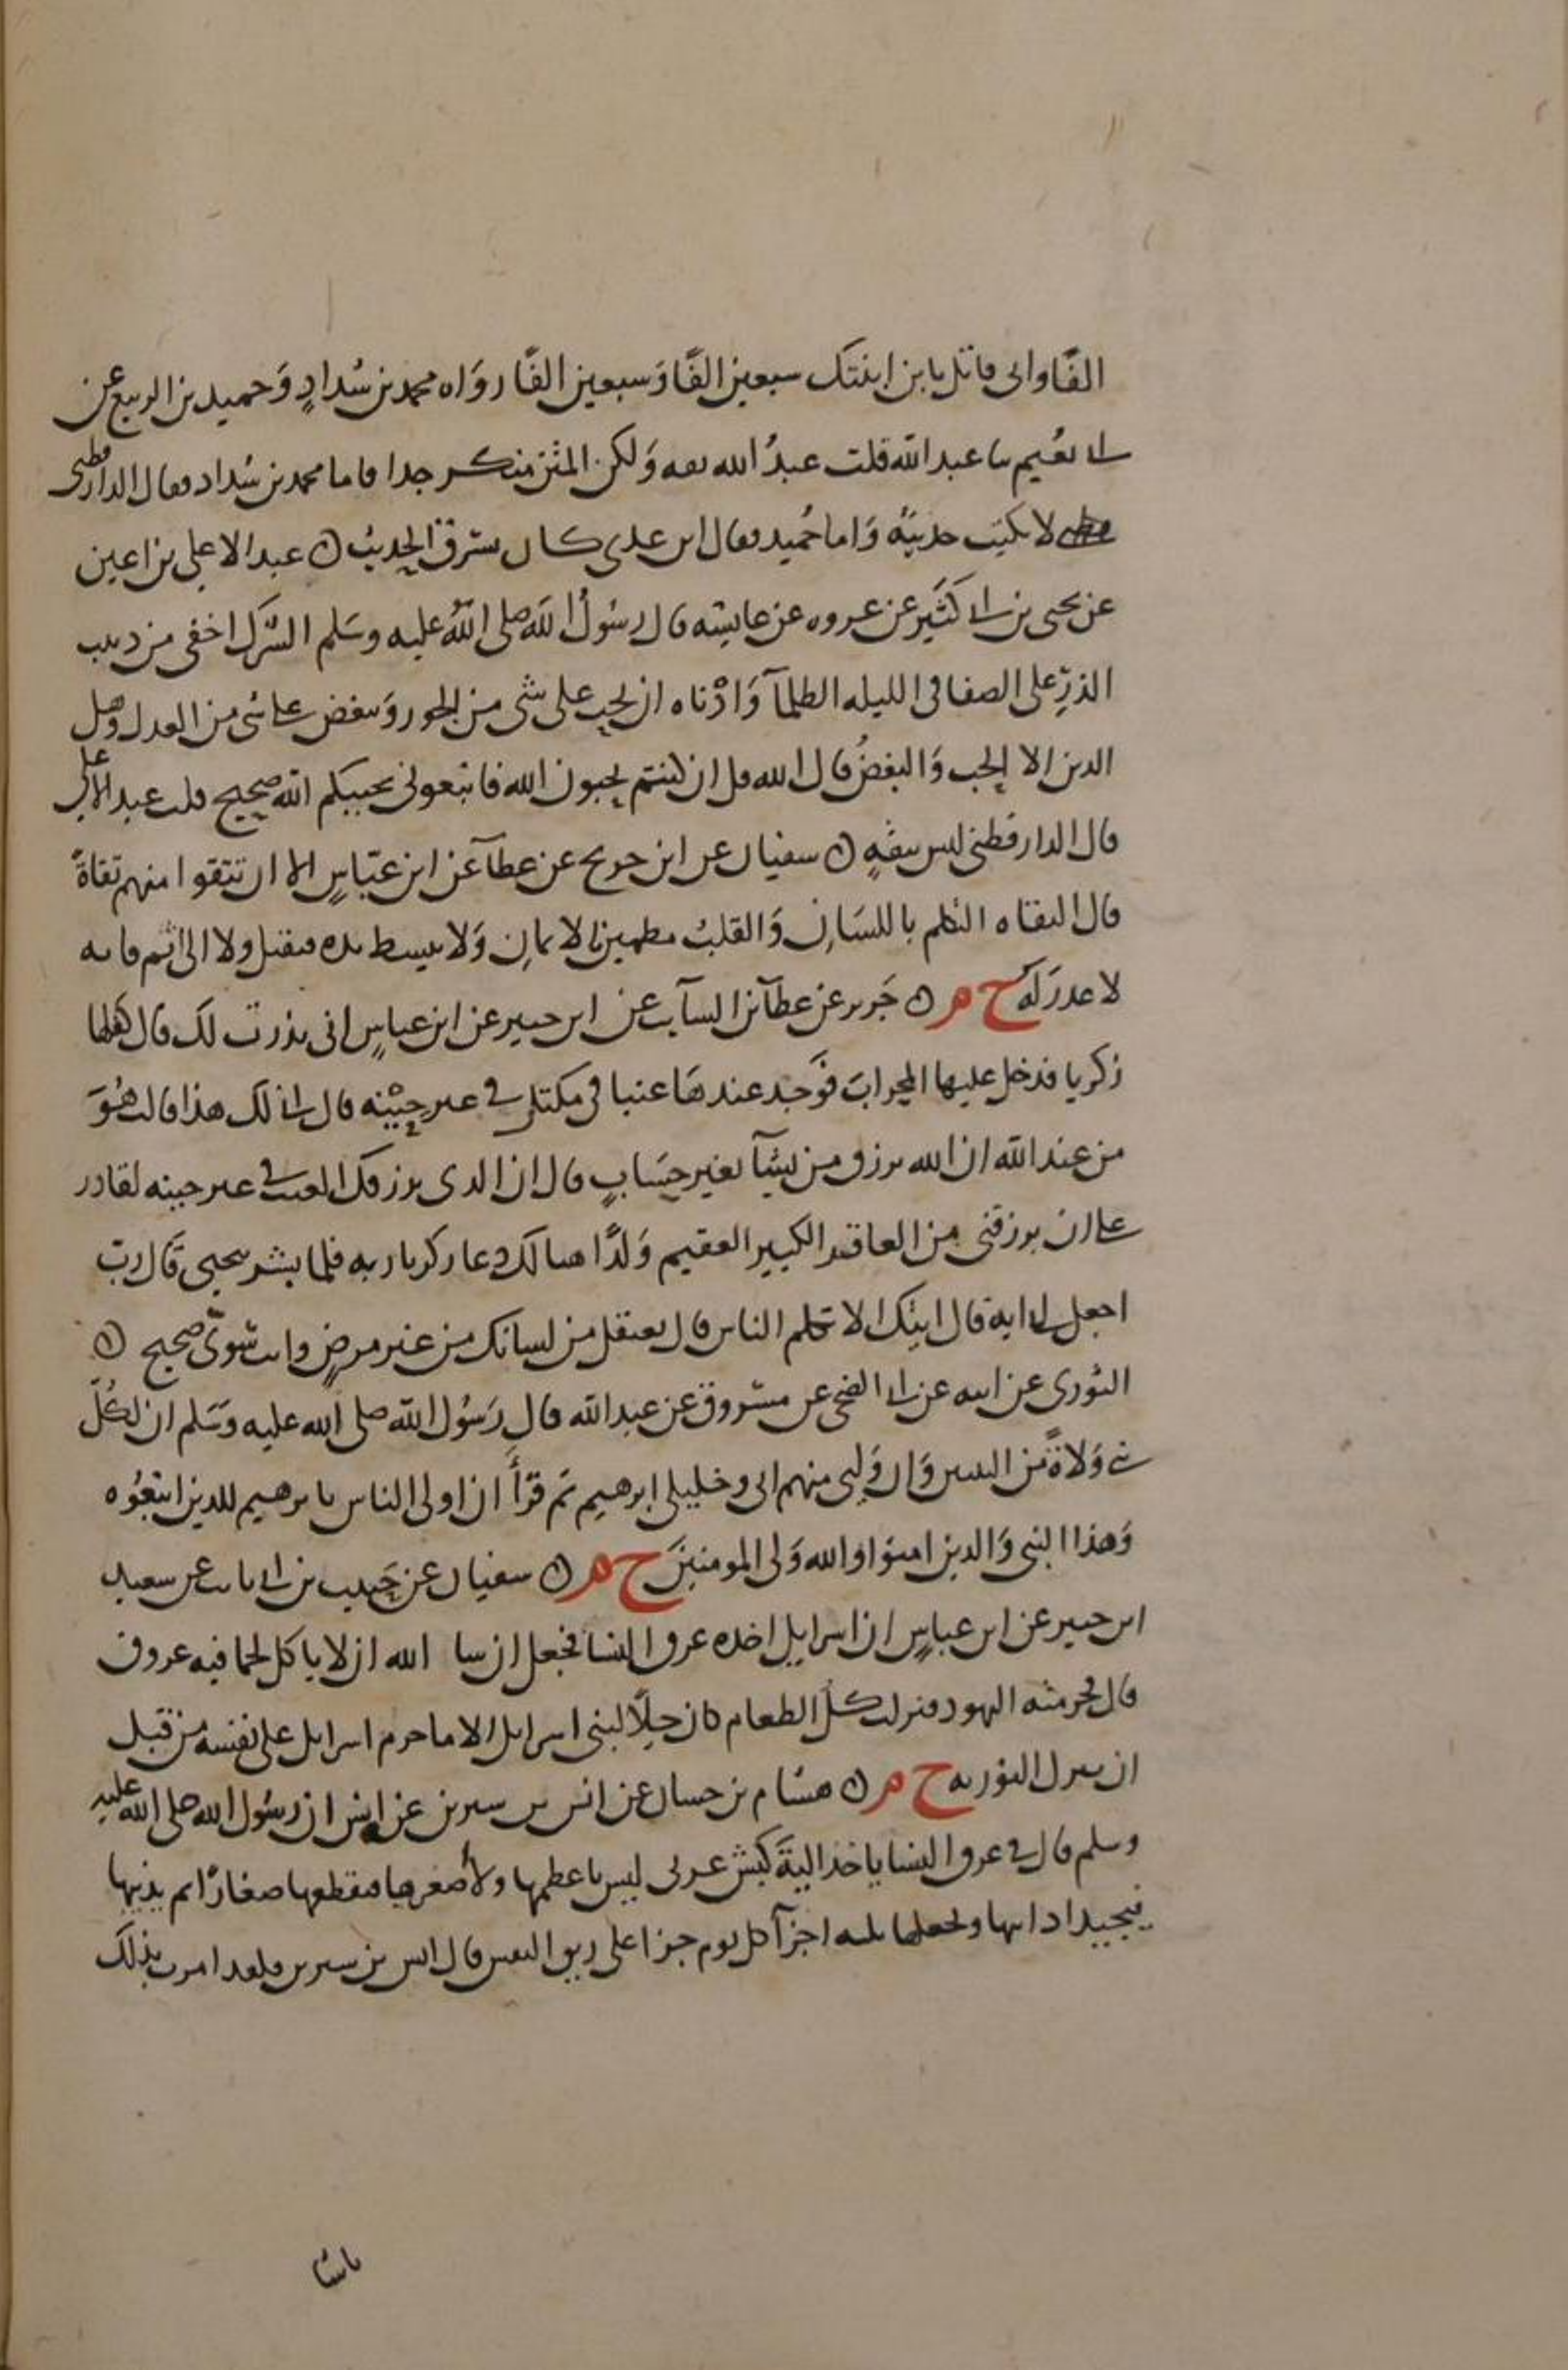 الفا وانى قاتل بابن ابنتك سبعين الفا وسبعين الفا رواه محمد بن شداد وحميد بن الربيع عن
ابى نعيم سا عبد الله قلت عبد الله ثقه ولكن المتن منكر جدا فاما محمد بن شداد فقال الدارقطنى
لا يكتب حديثه واما حميد فقال ابن عدى كان يسرق الحديث ٥ عبد الاعلى بن اعين
عن يحيى بن ابى كثير عن عروه عن عايشه قال رسول الله صلى الله عليه وسلم الشرك اخفى من دبيب
الذر على الصفا فى الليله الظلمآ وادناه ان يحب على شى من الجور ويبغض على شى من العدل وهل
الدين الا الحب والبغض قال الله قل ان كنتم تحبون الله فاتبعونى يحببكم الله صحيح قلت عبد الاعلى
قال الدارقطنى ليس بثقه ٥ سفيان عن ابن جريج عن عطآ عن ابن عباس الا ان تتقوا منهم تقاة
قال التقاه التكلم باللسان والقلب مطمين بالايمان ولا يبسط يده فيقتل ولا الى اثم فانه
لا عذر له خ م ٥ جرير عن عطآ بن السآيب عن ابن جبير عن ابن عباس انى نذرت لك قال كفلها
زكريا فدخل عليها المحراب فوجد عندها عنبا فى مكتل فى غير حينه قال انى لك هذا قالت هو
من عند الله ان الله يرزق من يشآ بغير حساب قال ان الذى يرزقك العنب فى غير حينه لقادر
على ان يرزقنى من العاقر الكبير العقيم ولدا هنالك دعا زكريا ربه فلما بشر بيحيى قال رب
اجعل لى ايه قال ايتك الا تكلم الناس قال يعتقل من لسانك من غير مرض وانت سوى صحيح ٥
الثورى عن ابيه عن ابى الضحى عن مسروق عن عبد الله قال رسول الله صلى الله عليه وسلم ان لكل
نبى ولاة من النبيين وان وليى منهم ابى وخليلى ابرهيم ثم قرأ ان اولى الناس بابرهيم للذين اتبعوه
وهذا النبى والذين امنوا والله ولى المومنين خ م ٥ سفيان عن حبيب بن ابى ثابت عن سعيد
ابن جبير عن ابن عباس ان اسرايل اخذه عرق النسا فجعل ان سا الله ان لا ياكل لحما فيه عروق
قال فحرمته اليهود فنزلت كل الطعام كان حلا لبنى اسرايل الا ما حرم اسرايل على نفسه من قبل
ان تنزل التوريه خ م ٥ هشام بن حسان عن انس بن سيرين عن انس ان رسول الله صلى الله عليه
وسلم قال فى عرق النسا ياخذ الية كبش عربى ليس باعظمها ولا اصغرها فيقطعها صغارا ثم يذيبها
فيجيد اذابتها ويجعلها ثلثه اجزآ كل يوم جزا على ريق النفس قال انس بن سيرين فلقد امرت بذلك